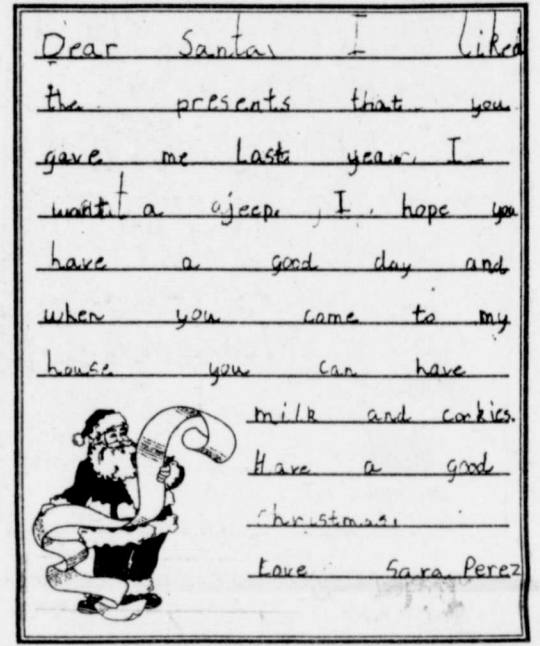 Dear Santa, I liked
the presents that you
gave me last year. I
want a jeep. I hope you
have a good day and
when you come to my
house you can have
milk and cookies.
Have a good
christmas.
Love Sara Perez